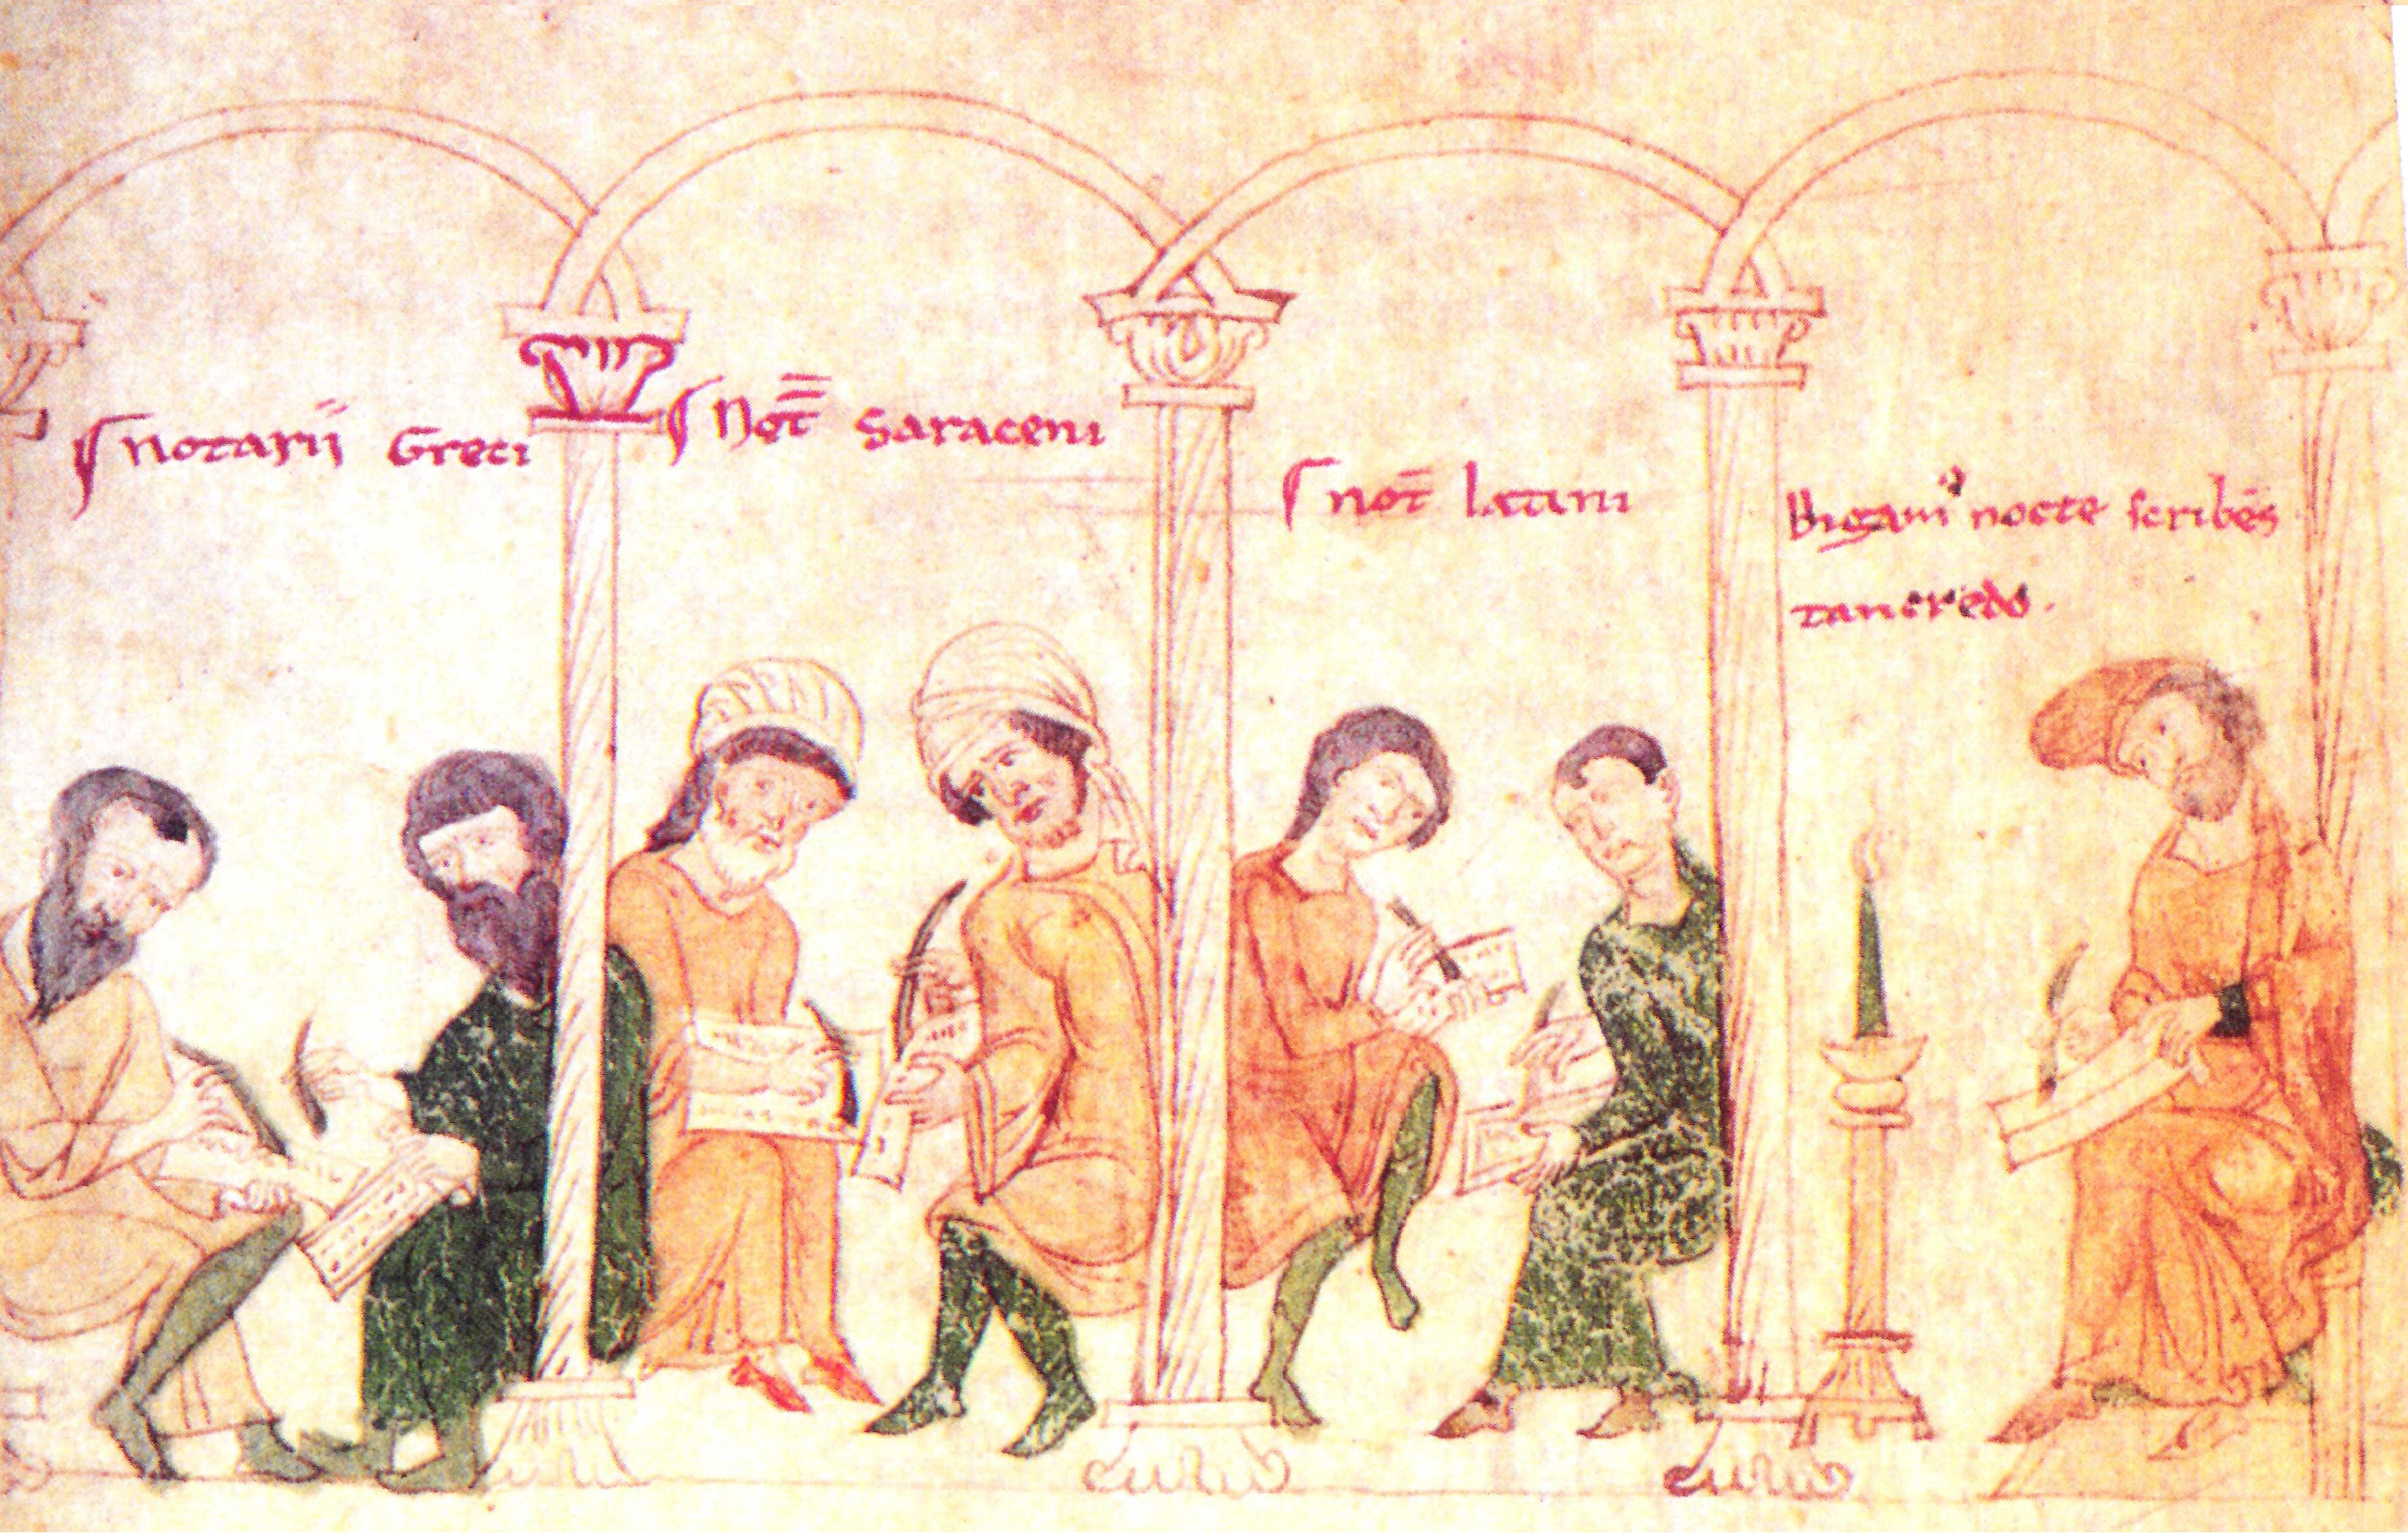 notarii Greci
Not̄ Saraceni
not̄ latini
Bigami' nocte scribēs
tancredo.